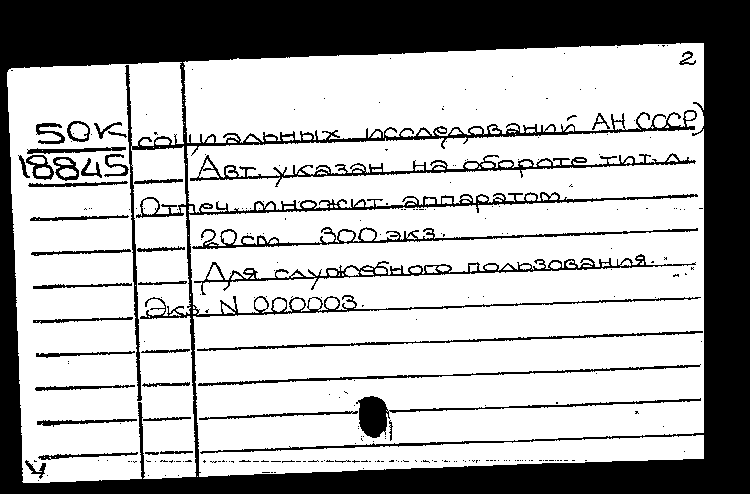 2
50К социальных исследований АН СССР)
18845 Авт. указан на обороте тит. л.
Отпеч. множит. аппаратом.
20 cm 300 экз.
Для служебного пользования.
Экз. N 000003.